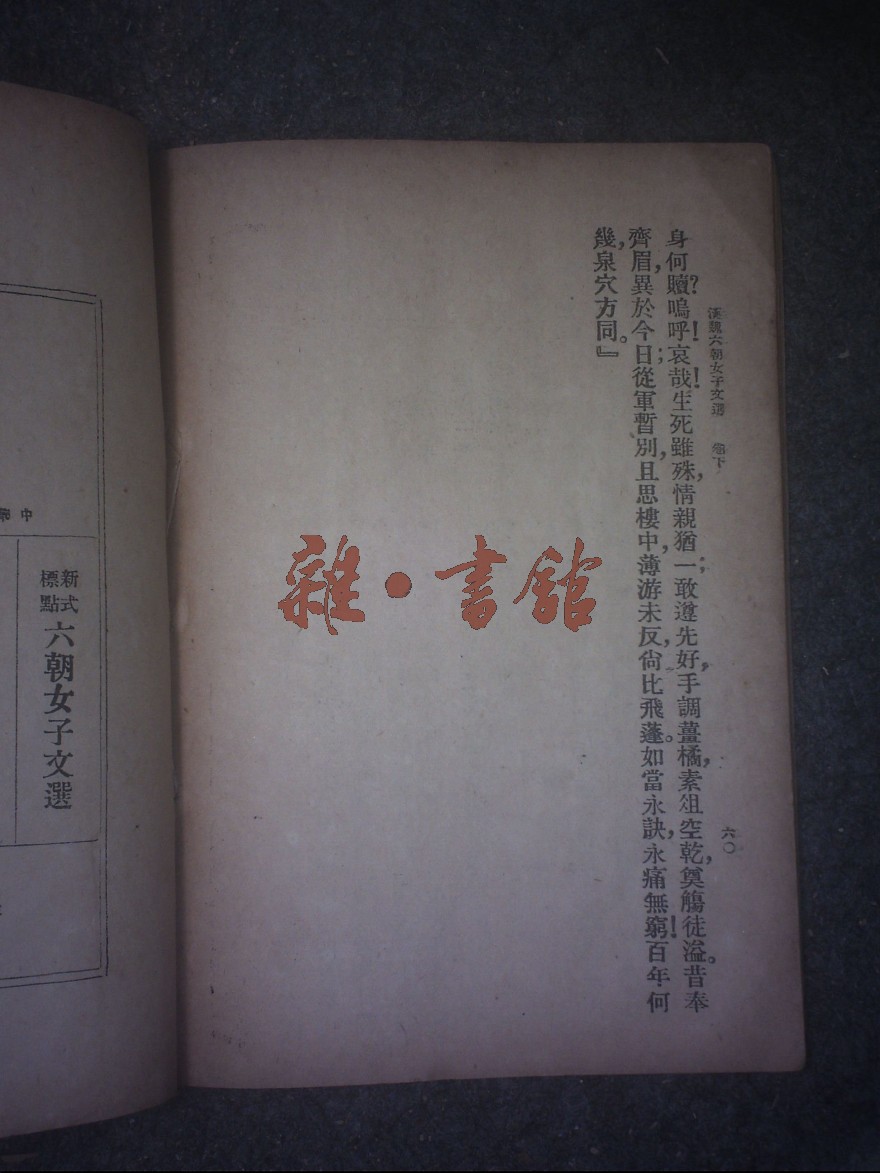 漢魏六朝女子文選 卷下 六〇
身何贖?嗚呼!哀哉!生死雖殊,情親猶一;敢遵先好,手調薑橘,素俎空乾,奠觴徒溢。昔奉
齊眉,異於今日;從軍暫別,且思樓中,薄游未反,尙比飛蓬。如當永訣,永痛無窮!百年何
幾,泉穴方同。』
雜·書館
中華
新式標點 六朝女子文選